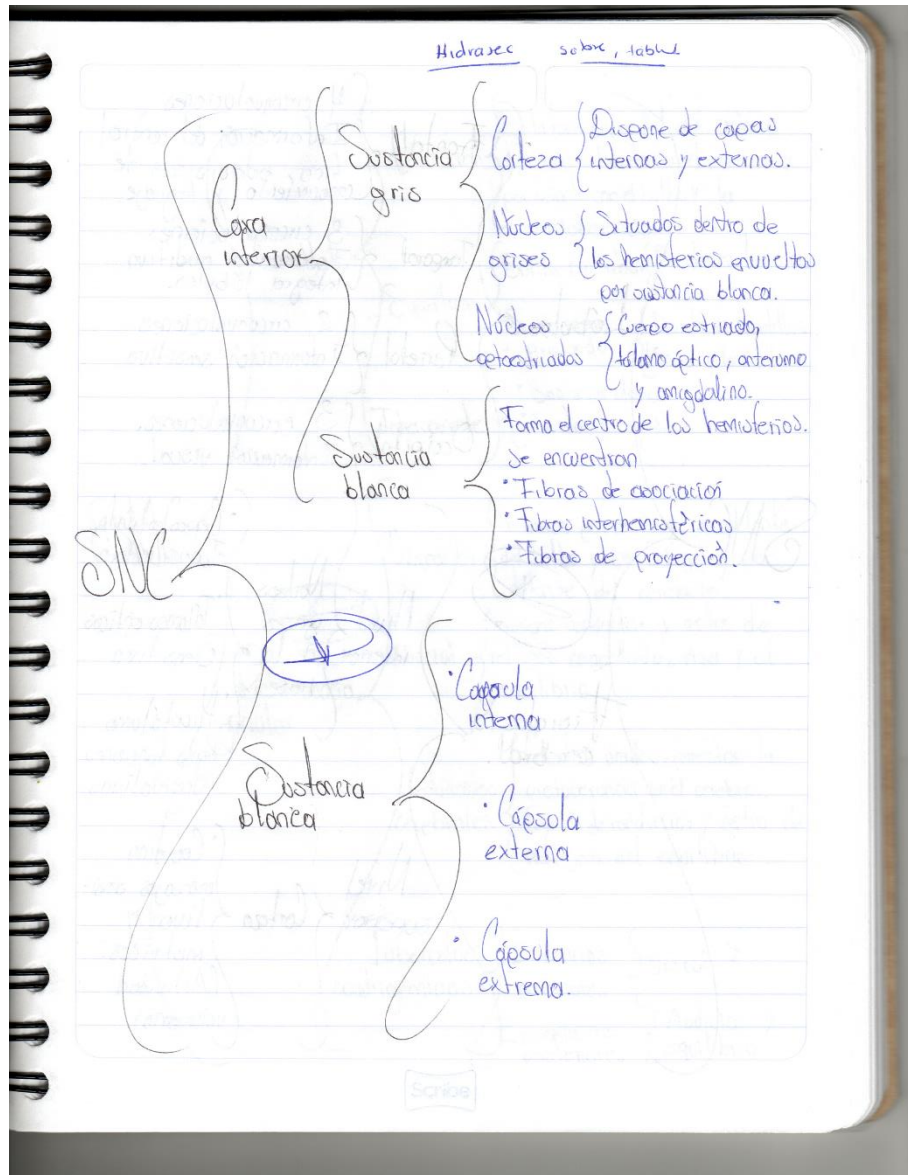 Hidrasec sobre, tablet
Sustancia
gris
Corteza
Dispone de capas
internas y externas.
Cara
interior
Núcleos
grises
Situados dentro de
los hemisferios envueltos
por sustancia blanca.
Núcleos
optoestriados
Cuerpo estriado,
tálamo óptico, antemuro
y amigdalino.
Sustancia
blanca
Forma el centro de los hemisferios.
Se encuentran
• Fibras de asociación
• Fibras interhemisféricas
• Fibras de proyección.
SNC
Sustancia
blanca
• Capsula
interna
• Cápsula
externa
• Cápsula
extrema.
Scribe